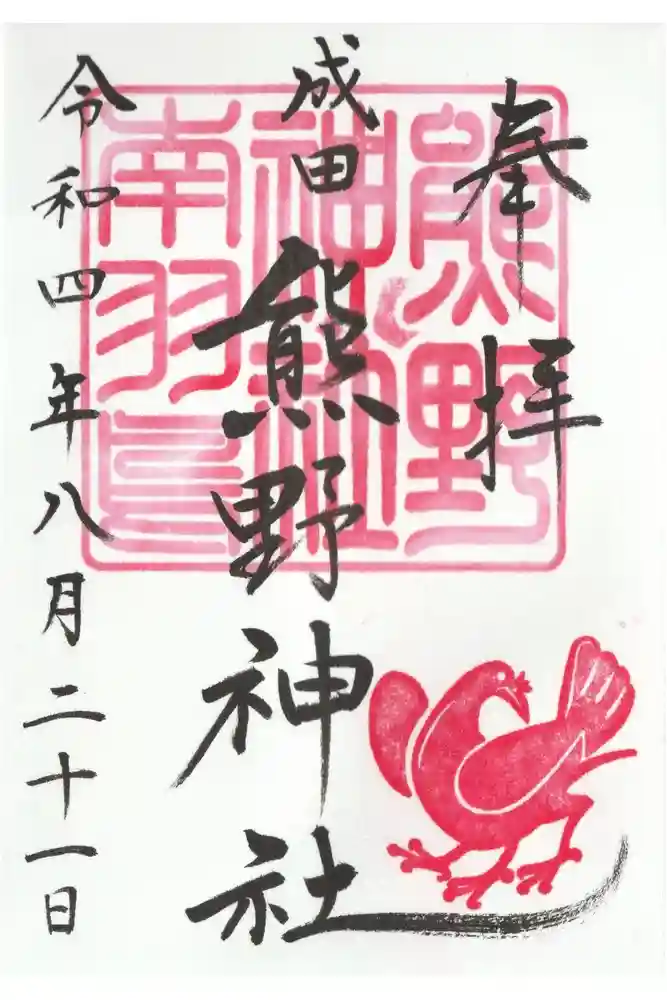 奉拝
成田熊野神社
令和四年八月二十一日
熊野
神社
南羽